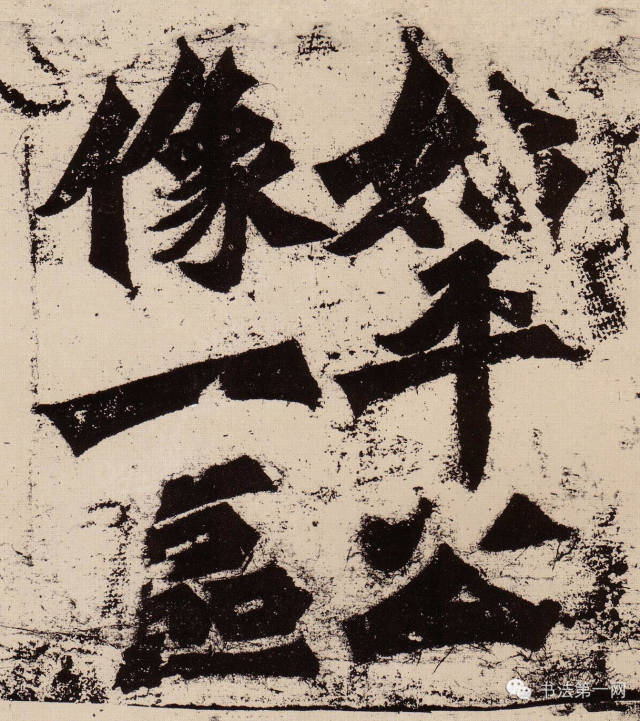 始平公
像一區
书法第一网